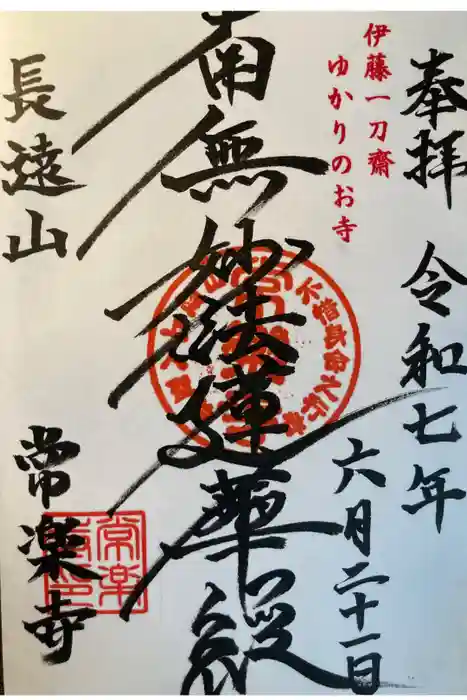 奉拝 令和七年
六月二十一日
伊藤一刀齋
ゆかりのお寺
南無妙法蓮華経
長遠山
常楽寺